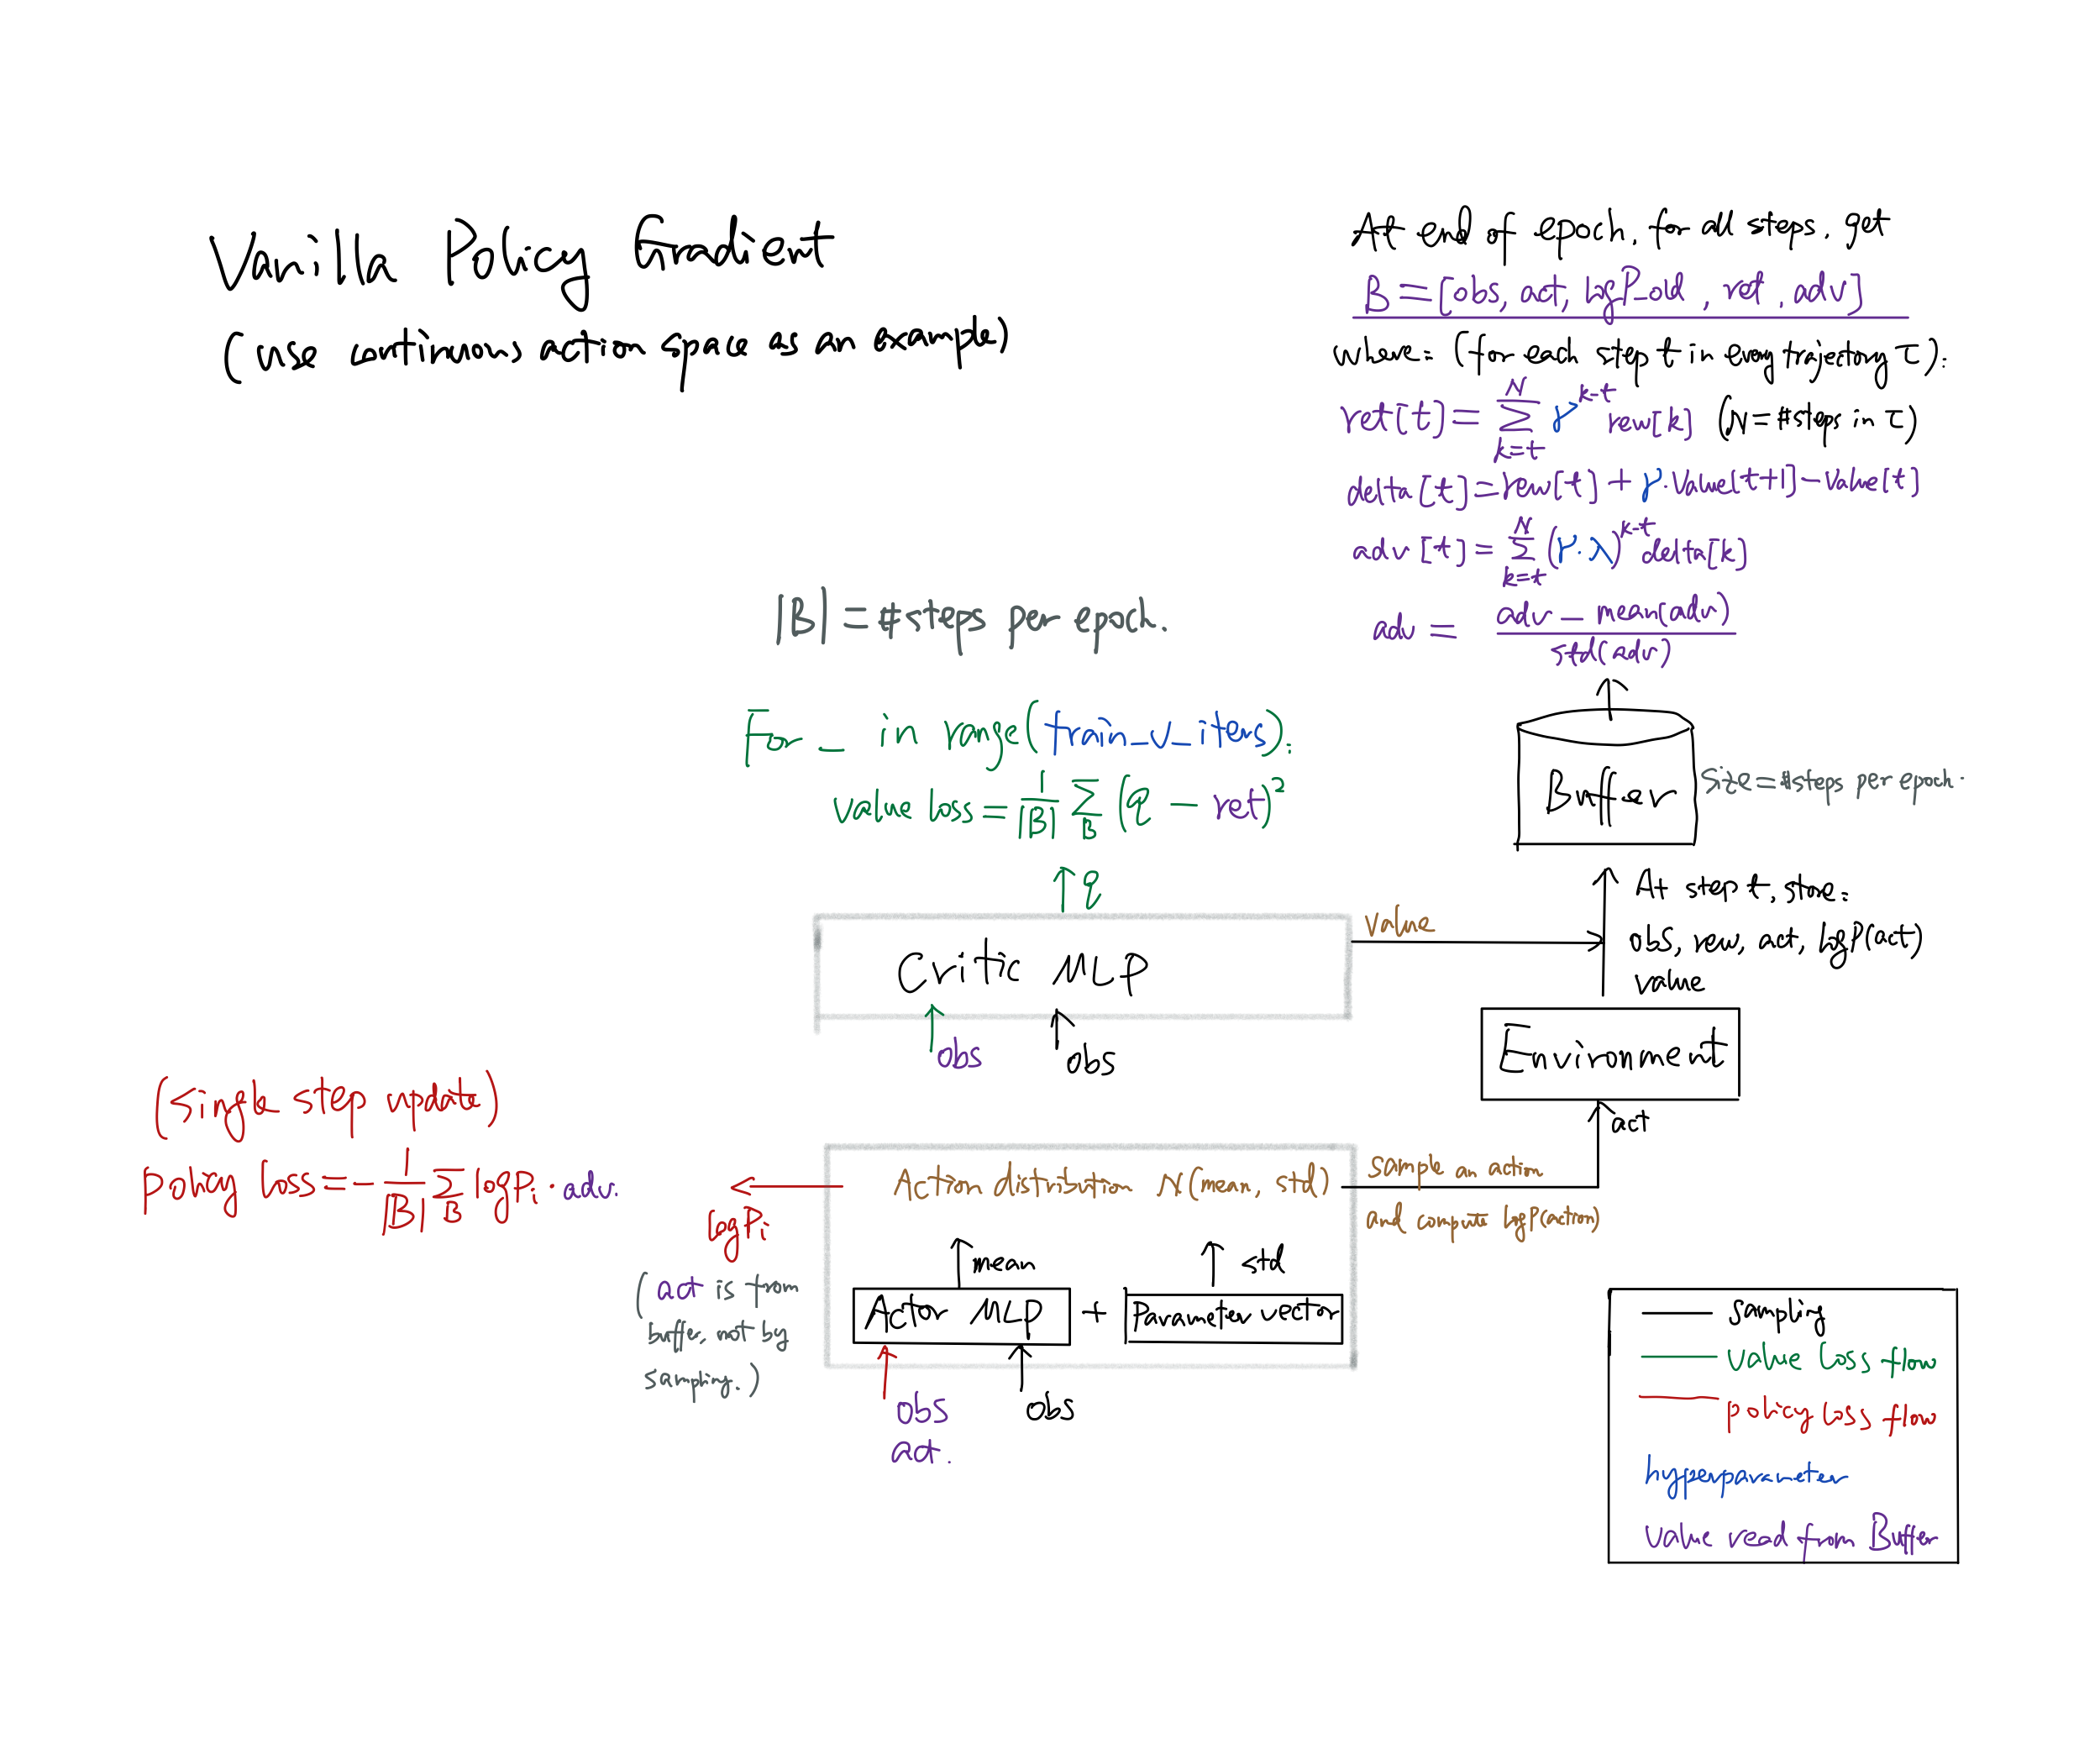 Vanilla Policy Gradient
(use continuous action space as an example)
At end of epoch, for all steps, get
B = [obs, act, logP_old, ret, adv]
where: (for each step t in every trajectory τ):
ret[t] = ∑_{k=t}^{N} γ^{k-t} rew[k] (N = #steps in τ)
delta[t] = rew[t] + γ·Value[t+1] - Value[t]
adv[t] = ∑_{k=t}^{N} (γ·λ)^{k-t} delta[k]
adv = (adv - mean(adv)) / std(adv)
|B| = #steps per epoch.
For _ in range(train_v_iters):
value loss = 1/|B| ∑_B (q - ret)²
q
Buffer
Size = #steps per epoch.
At step t, store:
obs, rew, act, logP(act)
value
Value
Critic MLP
obs
obs
Environment
act
(single step update)
policy loss = - 1/|B| ∑_B logPi · adv.
logPi
(act is from
buffer, not by
sampling.)
Action distribution N(mean, std)
sample an action
and compute logP(action)
mean
std
Actor MLP + Parameter vector
obs
act.
obs
sampling
value loss flow
policy loss flow
hyperparameter
value read from Buffer